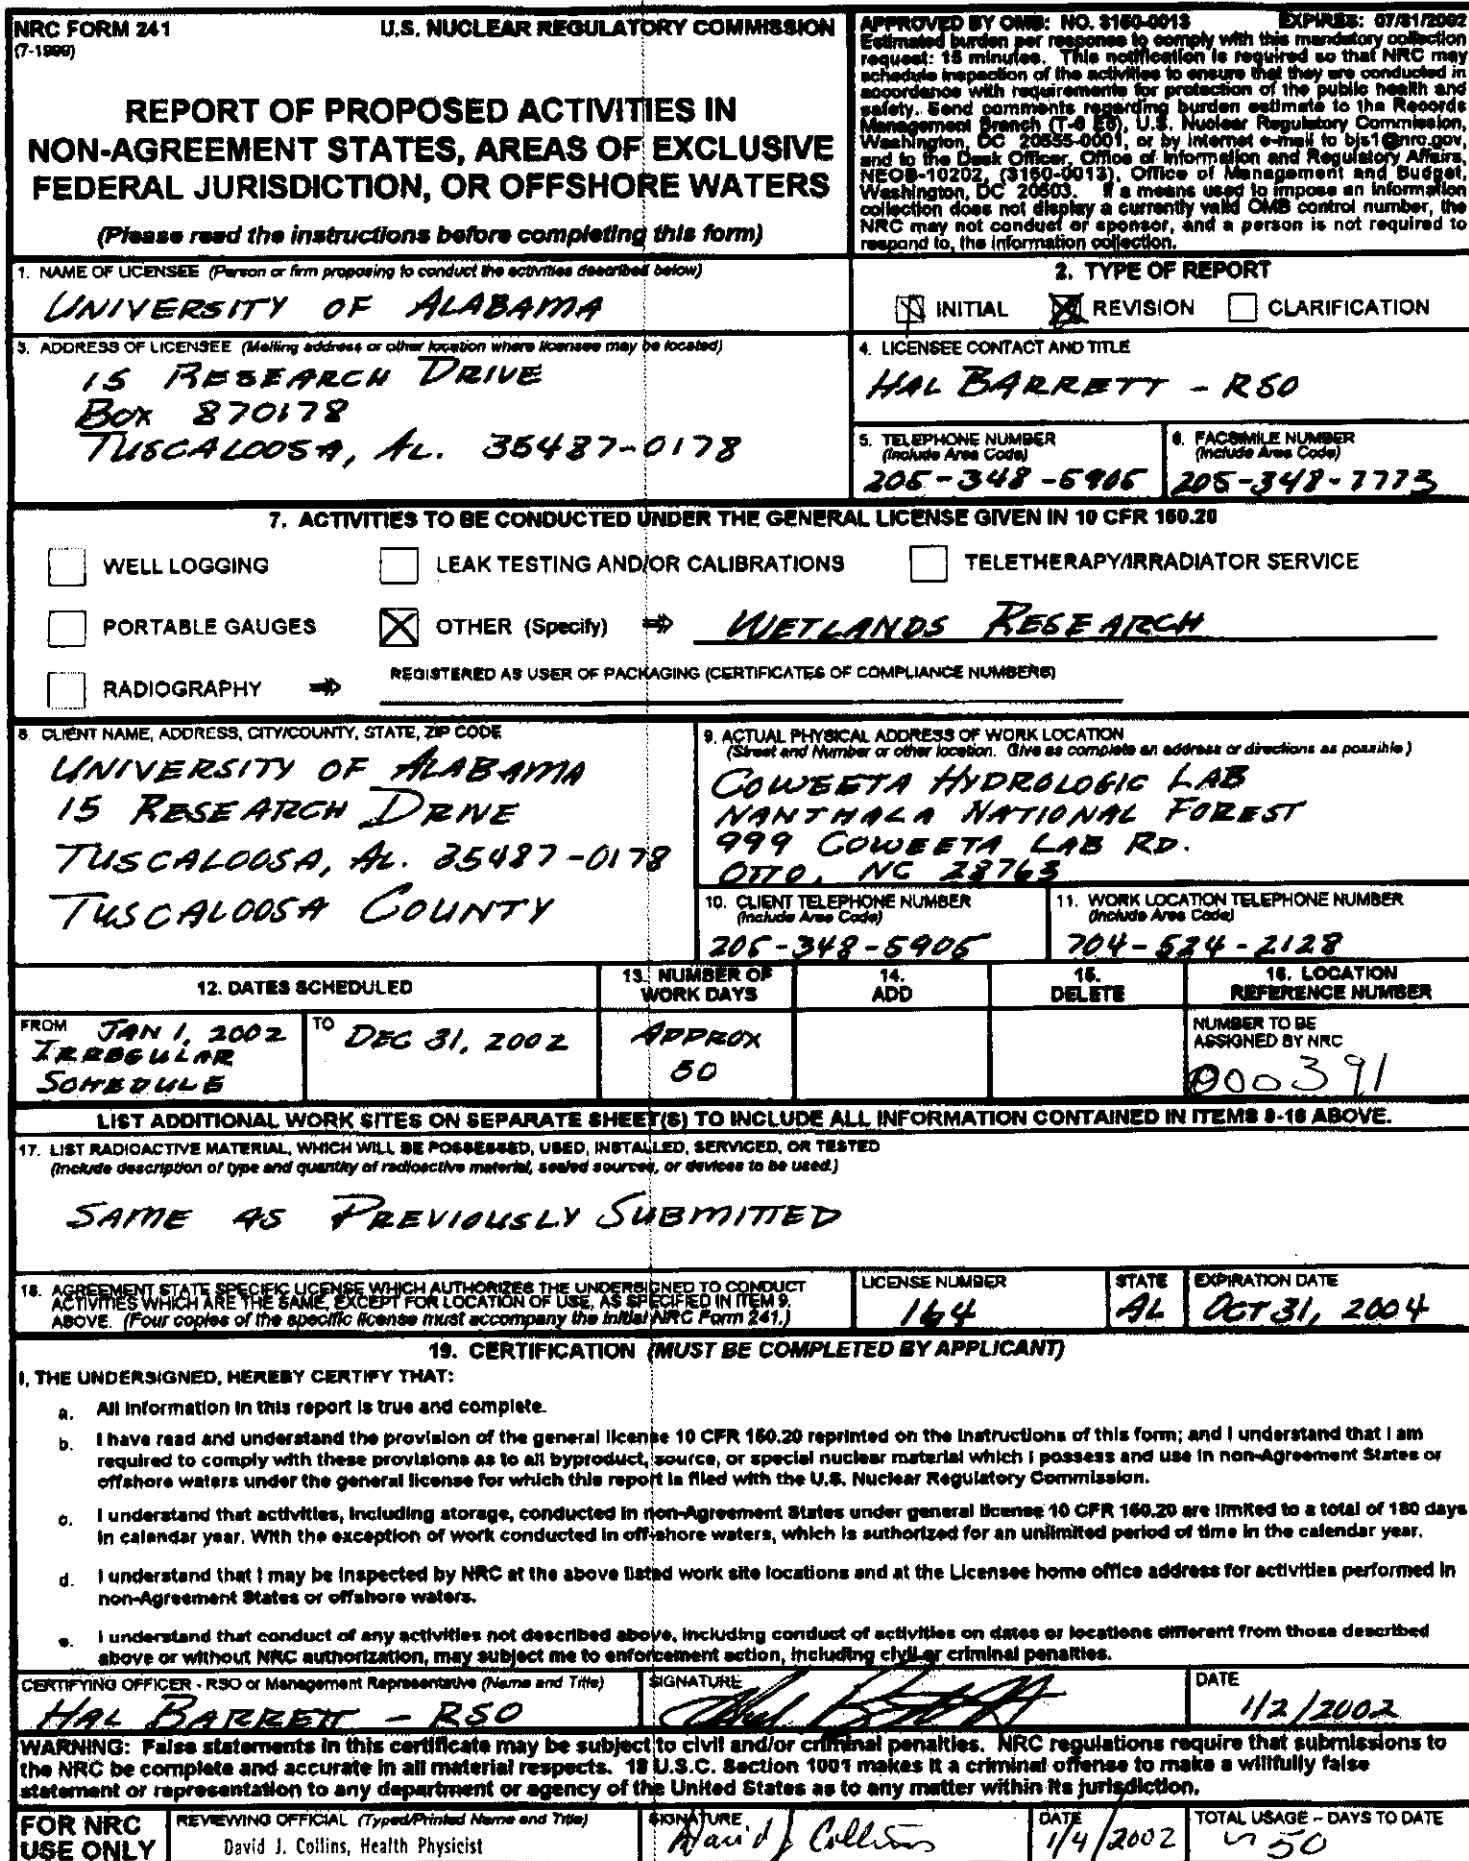 NRC FORM 241
(7-1999)
U.S. NUCLEAR REGULATORY COMMISSION
REPORT OF PROPOSED ACTIVITIES IN
NON-AGREEMENT STATES, AREAS OF EXCLUSIVE
FEDERAL JURISDICTION, OR OFFSHORE WATERS
(Please read the instructions before completing this form)
APPROVED BY OMB: NO. 3150-0013 EXPIRES: 07/31/2002
Estimated burden per response to comply with this mandatory collection
request: 15 minutes. This notification is required so that NRC may
schedule inspection of the activities to ensure that they are conducted in
accordance with requirements for protection of the public health and
safety. Send comments regarding burden estimate to the Records
Management Branch (T-6 E6), U.S. Nuclear Regulatory Commission,
Washington, DC 20555-0001, or by internet e-mail to bjs1@nrc.gov,
and to the Desk Officer, Office of Information and Regulatory Affairs,
NEOB-10202, (3150-0013), Office of Management and Budget,
Washington, DC 20503. If a means used to impose an information
collection does not display a currently valid OMB control number, the
NRC may not conduct or sponsor, and a person is not required to
respond to, the information collection.
1. NAME OF LICENSEE (Person or firm proposing to conduct the activities described below)
UNIVERSITY OF ALABAMA
2. TYPE OF REPORT
INITIAL REVISION CLARIFICATION
3. ADDRESS OF LICENSEE (Mailing address or other location where licensee may be located)
15 RESEARCH DRIVE
BOX 870178
TUSCALOOSA, AL. 35487-0178
4. LICENSEE CONTACT AND TITLE
HAL BARRETT - RSO
5. TELEPHONE NUMBER
(Include Area Code)
205-348-5905
6. FACSIMILE NUMBER
(Include Area Code)
205-348-7773
7. ACTIVITIES TO BE CONDUCTED UNDER THE GENERAL LICENSE GIVEN IN 10 CFR 150.20
WELL LOGGING LEAK TESTING AND/OR CALIBRATIONS TELETHERAPY/IRRADIATOR SERVICE
PORTABLE GAUGES OTHER (Specify) WETLANDS RESEARCH
RADIOGRAPHY REGISTERED AS USER OF PACKAGING (CERTIFICATES OF COMPLIANCE NUMBERS)
8. CLIENT NAME, ADDRESS, CITY/COUNTY, STATE, ZIP CODE
UNIVERSITY OF ALABAMA
15 RESEARCH DRIVE
TUSCALOOSA, AL. 35487-0178
TUSCALOOSA COUNTY
9. ACTUAL PHYSICAL ADDRESS OF WORK LOCATION
(Street and Number or other location. Give as complete an address or directions as possible)
COWEETA HYDROLOGIC LAB
NANTHALA NATIONAL FOREST
999 COWEETA LAB RD.
OTTO, NC 28763
10. CLIENT TELEPHONE NUMBER
(Include Area Code)
205-348-5905
11. WORK LOCATION TELEPHONE NUMBER
(Include Area Code)
704-524-2128
12. DATES SCHEDULED
13. NUMBER OF
WORK DAYS
14.
ADD
15.
DELETE
16. LOCATION
REFERENCE NUMBER
FROM JAN 1, 2002
IRREGULAR
SCHEDULE
TO DEC 31, 2002
APPROX
50
NUMBER TO BE
ASSIGNED BY NRC
000391
LIST ADDITIONAL WORK SITES ON SEPARATE SHEET(S) TO INCLUDE ALL INFORMATION CONTAINED IN ITEMS 9-16 ABOVE.
17. LIST RADIOACTIVE MATERIAL, WHICH WILL BE POSSESSED, USED, INSTALLED, SERVICED, OR TESTED
(Include description of type and quantity of radioactive material, sealed sources, or devices to be used.)
SAME AS PREVIOUSLY SUBMITTED
18. AGREEMENT STATE SPECIFIC LICENSE WHICH AUTHORIZES THE UNDERSIGNED TO CONDUCT
ACTIVITIES WHICH ARE THE SAME, EXCEPT FOR LOCATION OF USE, AS SPECIFIED IN ITEM 9.
ABOVE. (Four copies of the specific license must accompany the initial NRC Form 241.)
LICENSE NUMBER
164
STATE
AL
EXPIRATION DATE
OCT 31, 2004
19. CERTIFICATION (MUST BE COMPLETED BY APPLICANT)
I, THE UNDERSIGNED, HEREBY CERTIFY THAT:
a. All information in this report is true and complete.
b. I have read and understand the provision of the general license 10 CFR 150.20 reprinted on the instructions of this form; and I understand that I am
required to comply with these provisions as to all byproduct, source, or special nuclear material which I possess and use in non-Agreement States or
offshore waters under the general license for which this report is filed with the U.S. Nuclear Regulatory Commission.
c. I understand that activities, including storage, conducted in non-Agreement States under general license 10 CFR 150.20 are limited to a total of 180 days
in calendar year. With the exception of work conducted in off-shore waters, which is authorized for an unlimited period of time in the calendar year.
d. I understand that I may be inspected by NRC at the above listed work site locations and at the Licensee home office address for activities performed in
non-Agreement States or offshore waters.
e. I understand that conduct of any activities not described above, including conduct of activities on dates or locations different from those described
above or without NRC authorization, may subject me to enforcement action, including civil or criminal penalties.
CERTIFYING OFFICER - RSO or Management Representative (Name and Title)
HAL BARRETT - RSO
SIGNATURE
Hal Barrett
DATE
1/2/2002
WARNING: False statements in this certificate may be subject to civil and/or criminal penalties. NRC regulations require that submissions to
the NRC be complete and accurate in all material respects. 18 U.S.C. Section 1001 makes it a criminal offense to make a willfully false
statement or representation to any department or agency of the United States as to any matter within its jurisdiction.
FOR NRC
USE ONLY
REVIEWING OFFICIAL (Typed/Printed Name and Title)
David J. Collins, Health Physicist
SIGNATURE
David J Collins
DATE
1/4/2002
TOTAL USAGE - DAYS TO DATE
~50